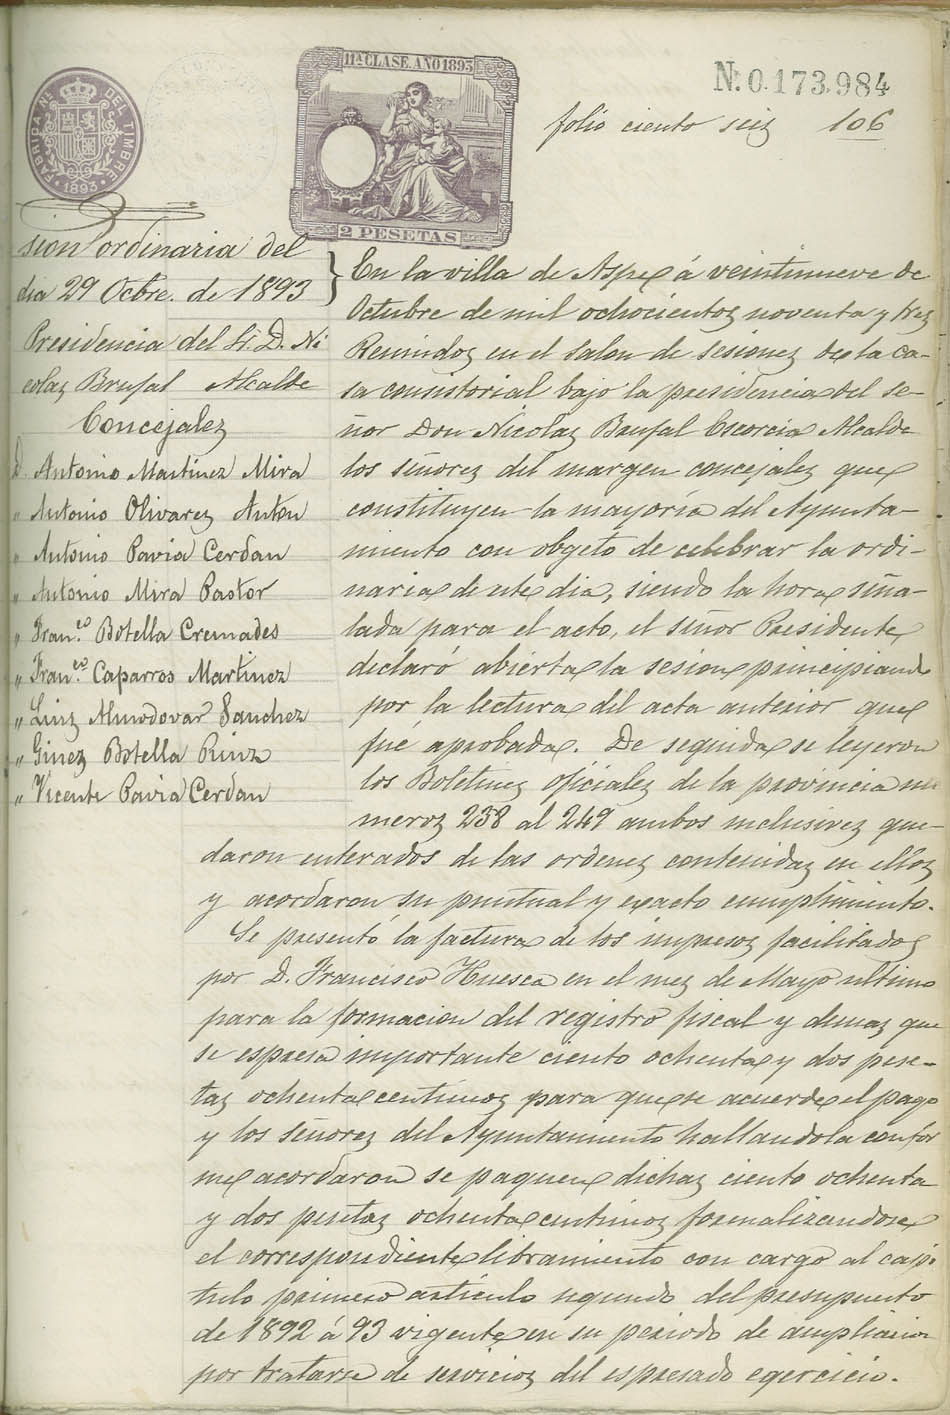 11ª CLASE. AÑO 1893
2 PESETAS
FABRICA Nˡ DEL TIMBRE
1893
Nº. 0.173.984
folio ciento seiz 106
sion ordinaria del
dia 29 Octbre. de 1893
Presidencia del Sr. D. Ni
colaz Brufal Alcalde
Concejalez
D. Antonio Martinez Mira
" Antonio Olivarez Anton
" Antonio Pavia Cerdan
" Antonio Mira Pastor
" Fran.co Botella Cremades
" Fran.co Caparros Martinez
" Luiz Almodovar Sanchez
" Ginez Botella Ruiz
" Vicente Pavia Cerdan
En la villa de Aspe á veintinueve de
Octubre de mil ochocientoz noventa y trez
Reunidoz en el salon de sesionez de la ca-
sa consistorial bajo la presidencia del se-
ñor Don Nicolaz Brufal Escorcia Alcalde
los señorez del margen concejalez que
constituyen la mayoría del Ayunta-
miento con obgeto de celebrar la ordi-
naria de este dia, siendo la hora seña-
lada para el acto, el señor Presidente
declaró abierta la sesion principiando
por la lectura del acta anterior que
fué aprobada. De seguida se leyeron
los Boletinez oficialez de la provincia nu
meroz 238 al 249 ambos inclusivez que-
daron enterados de las ordenez contenidaz en elloz
y acordaron su puntual y exacto cumplimiento.
Se presentó la factura de los impresoz facilitadoz
por D. Francisco Huesca en el mez de Mayo ultimo
para la formacion del registro fiscal y demaz que
se espresa importante ciento ochenta y dos pese-
taz ochenta centimoz para que se acuerde el pago
y los señorez del Ayuntamiento hallandola confor
me acordaron se paguen dichaz ciento ochenta
y dos pesetaz ochenta centimoz formalizandose
el correspondiente libramiento con cargo al capi
tulo primero articulo segundo del presupuesto
de 1892 á 93 vigente en su periodo de ampliacion
por tratarse de servicioz del espresado egercicio.